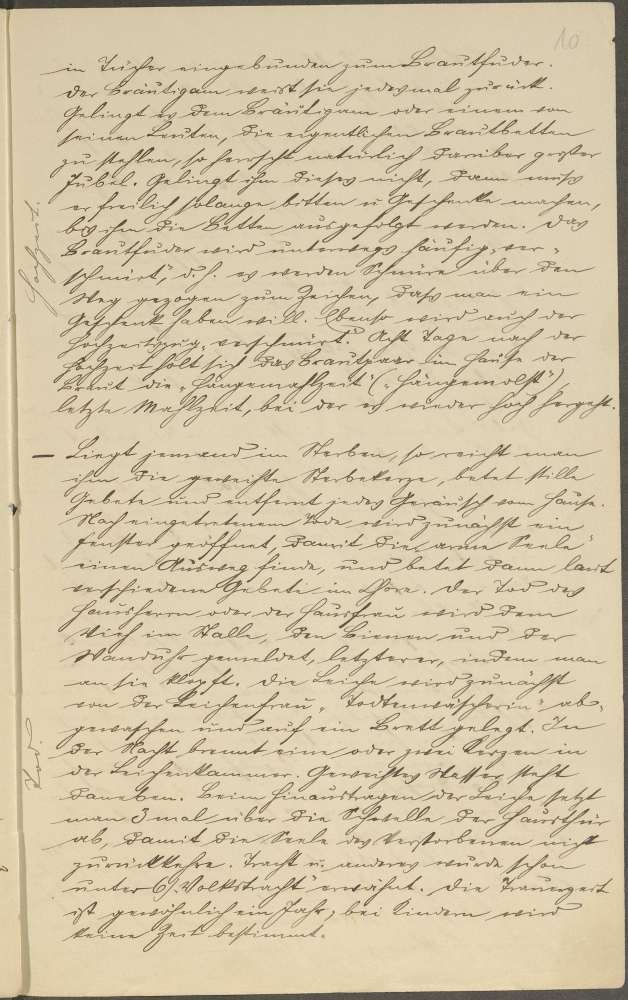 10
in Tücher eingebunden zum Brautfuder.
Der Bräutigam weist sie jedesmal zurück.
Gelingt es dem Bräutigam oder einem von
seinen Leuten, die eigentlichen Brautbetten
zu stehlen, so herrscht natürlich darüber großer
Jubel. Gelingt ihm dieses nicht, dann muß
er freilich solange bitten u. Geschenke machen,
bis ihm die Betten ausgefolgt werden. Das
Brautfuder wird unterwegs häufig „ver-
schnürt", d. h. es werden Schnüre über den
Weg gezogen zum Zeichen, daß man ein
Geschenk haben will. Ebenso wird auch der
Hochzeitszug „verschnürt". Acht Tage nach der
Hochzeit holt sich das Brautpaar im Hause der
Braut die „Hängemahlzeit" („Hängemolst"),
letzte Mahlzeit, bei der es wieder hoch hergeht.
Hochzeit.
— Liegt jemand im Sterben, so reicht man
ihm die geweihte Sterbekerze, betet stille
Gebete und entfernt jedes Geräusch vom Hause.
Nach eingetretenem Tode wird zunächst ein
Fenster geöffnet, damit die „arme Seele"
einen Ausweg finde, und betet dann laut
verschiedene Gebete im Chore. Der Tod des
Hausherrn oder der Hausfrau wird dem
Vieh im Stalle, den Bienen und der
Wanduhr gemeldet, letzterer, indem man
an sie klopft. Die Leiche wird zunächst
von der Leichenfrau „Todtenwäscherin" ab-
gewaschen und auf ein Brett gelegt. In
der Nacht brennt eine oder zwei Kerzen in
der Leichenkammer. Geweihtes Wasser steht
daneben. Beim Hinaustragen der Leiche setzt
man 3 mal über die Schwelle der Hausthür
ab, damit die Seele des Verstorbenen nicht
zurückkehre. Tracht u. anderes wurde schon
unter 6) „Volkstracht" erwähnt. Die Trauerzeit
ist gewöhnlich ein Jahr; bei Kindern wird
keine Zeit bestimmt.
Tod.